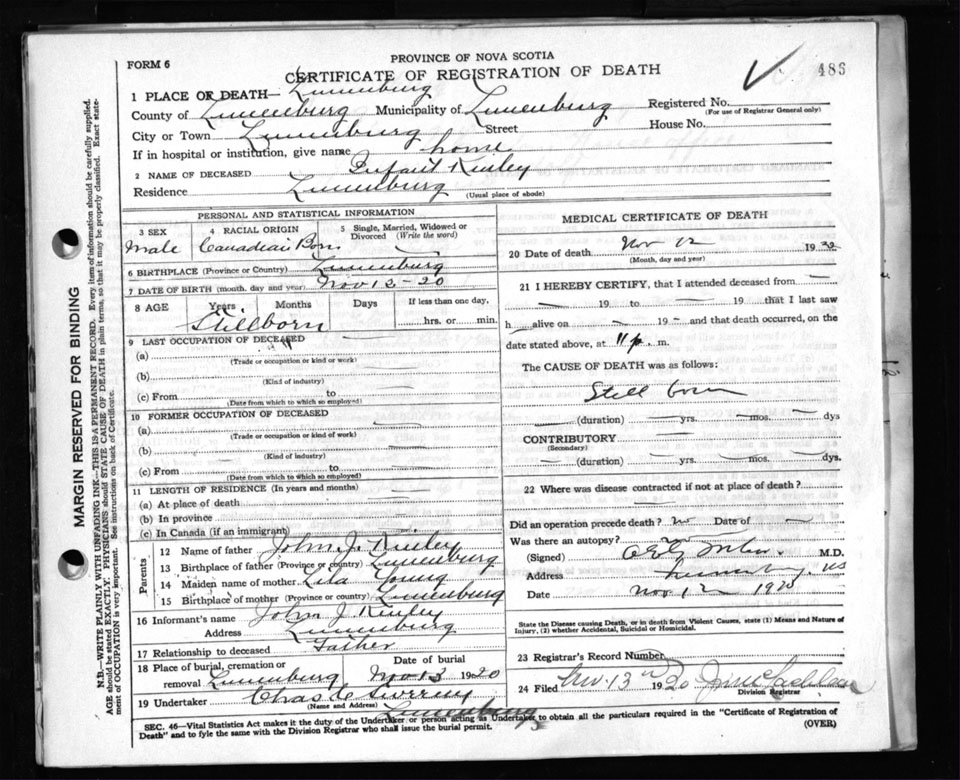 FORM 6
PROVINCE OF NOVA SCOTIA
CERTIFICATE OF REGISTRATION OF DEATH
486
1 PLACE OF DEATH— Lunenburg
County of Lunenburg Municipality of Lunenburg Registered No.
(For use of Registrar General only)
City or Town Lunenburg Street House No.
If in hospital or institution, give name home
2 NAME OF DECEASED Infant Kinley
Residence Lunenburg
(Usual place of abode)
PERSONAL AND STATISTICAL INFORMATION
3 SEX 4 RACIAL ORIGIN 5 Single, Married, Widowed or Divorced (Write the word)
Male Canadian Born —
6 BIRTHPLACE (Province or Country) Lunenburg
7 DATE OF BIRTH (month, day and year) Nov 12-20
8 AGE Years Months Days If less than one day,
Stillborn hrs. or min.
9 LAST OCCUPATION OF DECEASED
(a)
(Trade or occupation or kind or work)
(b)
(Kind of industry)
(c) From to
(Date from which to which so employed)
10 FORMER OCCUPATION OF DECEASED
(a)
(Trade or occupation or kind of work)
(b)
(Kind of industry)
(c) From to
(Date from which to which so employed)
11 LENGTH OF RESIDENCE (In years and months)
(a) At place of death
(b) In province
(c) In Canada (if an immigrant)
Parents
12 Name of father John J. Kinley
13 Birthplace of father (Province or country) Lunenburg
14 Maiden name of mother Lila Young
15 Birthplace of mother (Province or country) Lunenburg
16 Informant's name John J Kinley
Address Lunenburg
17 Relationship to deceased Father
18 Place of burial, cremation or removal Lunenburg Date of burial Nov 13 1920
19 Undertaker Chas
(Name and Address)
Lunenburg
MEDICAL CERTIFICATE OF DEATH
20 Date of death Nov 12 19
(Month, day and year)
21 I HEREBY CERTIFY, that I attended deceased from —
— 19 — to — 19 — that I last saw
h alive on — 19 — and that death occurred, on the
date stated above, at 11 p. m.
The CAUSE OF DEATH was as follows:
Still born
— (duration) — yrs. — mos. — dys
CONTRIBUTORY —
(Secondary)
— (duration) — yrs. — mos. — dys.
22 Where was disease contracted if not at place of death?
Did an operation precede death? no Date of —
Was there an autopsy?
(Signed) M.D.
Address Lunenburg, NS
Date Nov 12 1920
State the Disease causing Death, or in death from Violent Causes, state (1) Means and Nature of Injury, (2) whether Accidental, Suicidal or Homicidal.
23 Registrar's Record Number
24 Filed Nov. 13th 1920
Division Registrar
SEC. 46—Vital Statistics Act makes it the duty of the Undertaker or person acting as Undertaker to obtain all the particulars required in the "Certificate of Registration of
Death" and to fyle the same with the Division Registrar who shall issue the burial permit. (OVER)
MARGIN RESERVED FOR BINDING
N.B.—WRITE PLAINLY WITH UNFADING INK—THIS IS A PERMANENT RECORD. Every item of information should be carefully supplied.
AGE should be stated EXACTLY. PHYSICIANS should STATE CAUSE OF DEATH in plain terms, so that it may be properly classified. Exact state-
ment of OCCUPATION is very important. See instructions on back of Certificate.